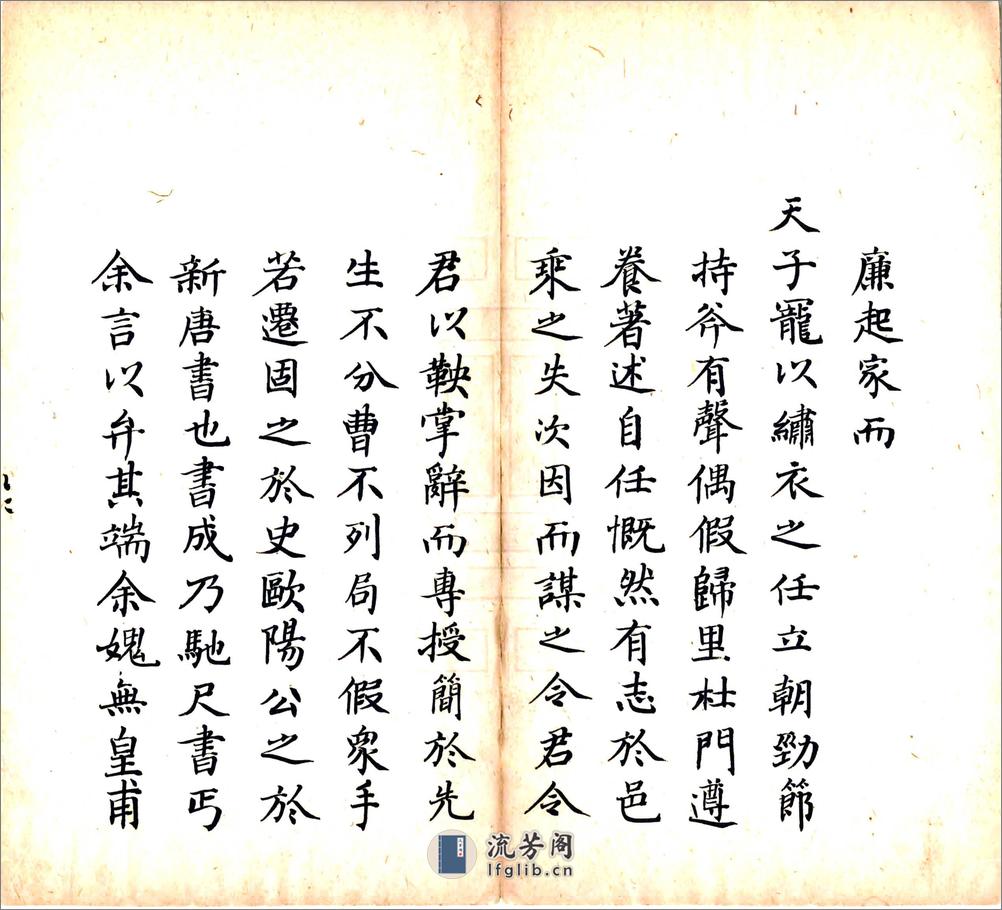 廉起家而
天子寵以繡衣之任立朝勁節
持斧有聲偶假歸里杜門遵
養著述自任慨然有志於邑
乘之失次因而謀之令君令
君以鞅掌辭而專授簡於先
生不分曹不列局不假眾手
若遷固之於史歐陽公之於
新唐書也書成乃馳尺書丐
余言以弁其端余媿無皇甫
流芳阁
lfglib.cn